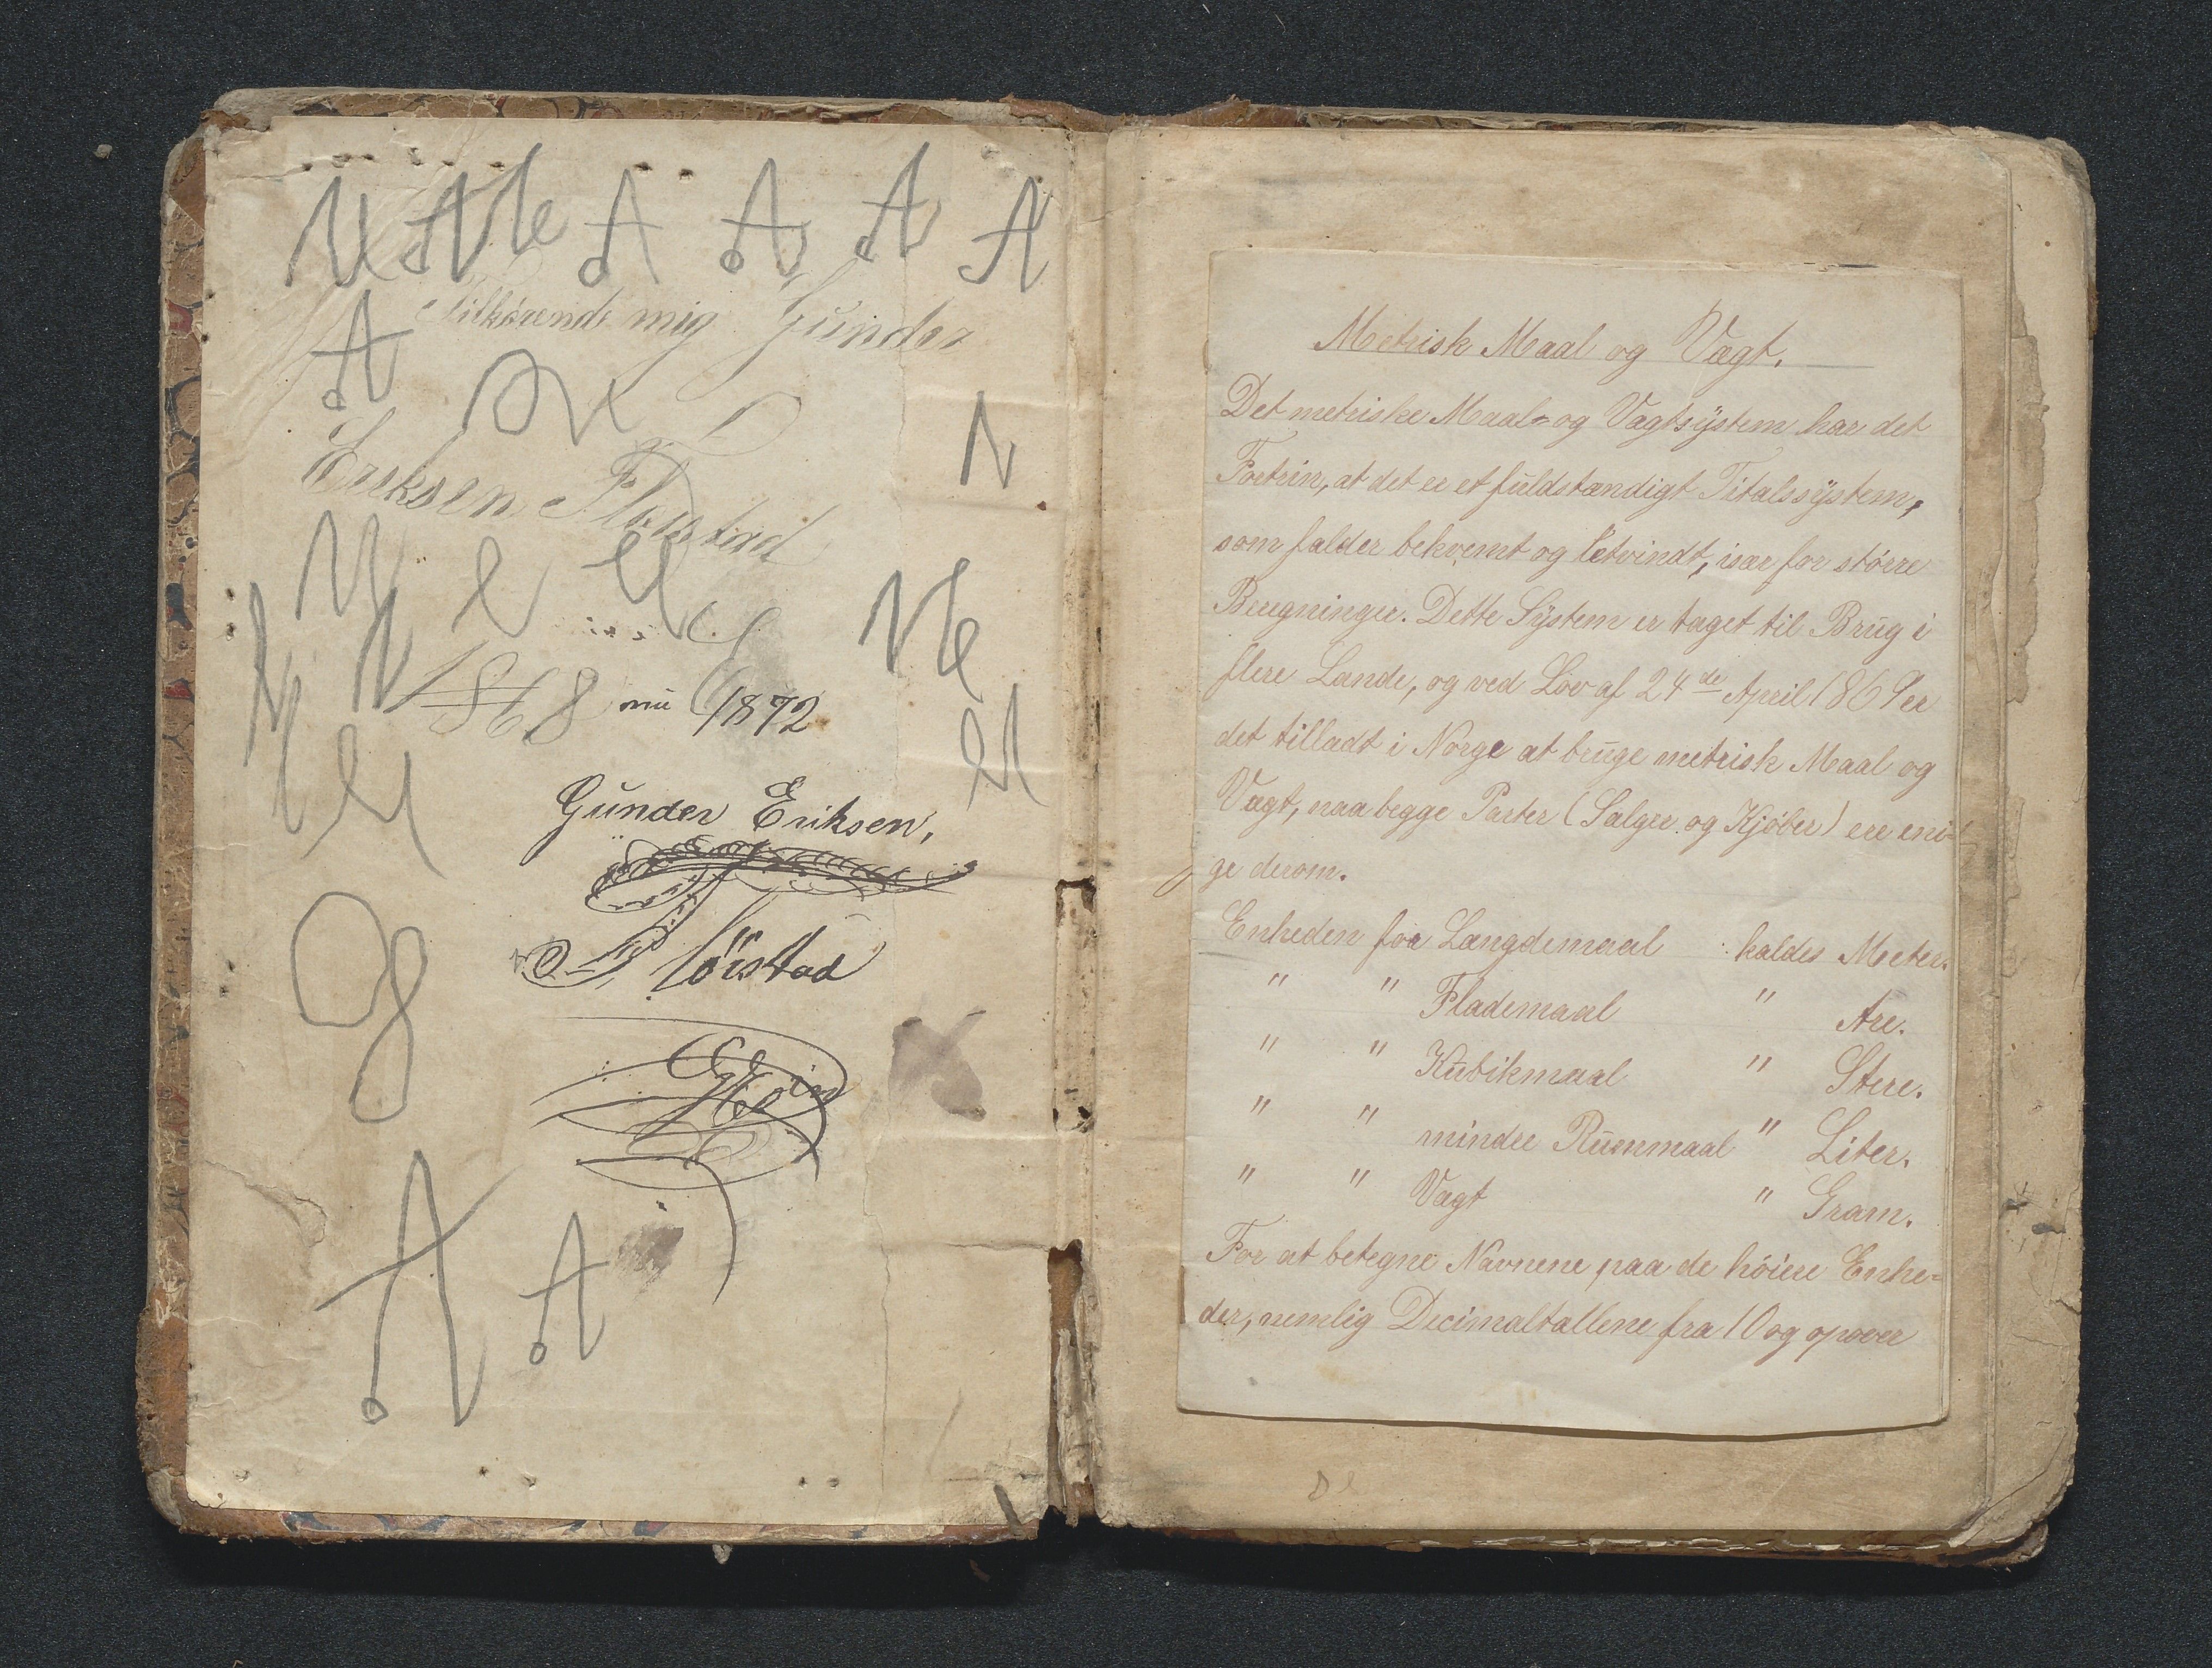 U A Ne A A A A
Tilhørende mig Gunder
A
Eriksen Fløistad
N
1868 nu 1872
Gunder Eriksen,
Flöistad
A A
Metrisk Maal og Vægt.
Det metriske Maal- og Vægtsÿstem har det
Fortrin, at det er et fuldstændigt Titalssÿstem,
som falder bekvemt og letvindt, især for større
Beregninger. Dette Sÿstem er taget til Brug i
flere Lande, og ved Lov af 24de April 1869 er
det tilladt i Norge at bruge metrisk Maal og
Vægt, naar begge Parter (Sælger og Kjøber) ere eni-
ge derom.
Enheden for Længdemaal : kaldes Meter.
" " Flademaal " Are.
" " Kubikmaal " Stere.
" " mindre Rummaal " Liter.
" " Vægt " Gram.
For at betegne Navnene paa de høiere Enhe-
der, nemlig Decimaltallene fra 10 og opover